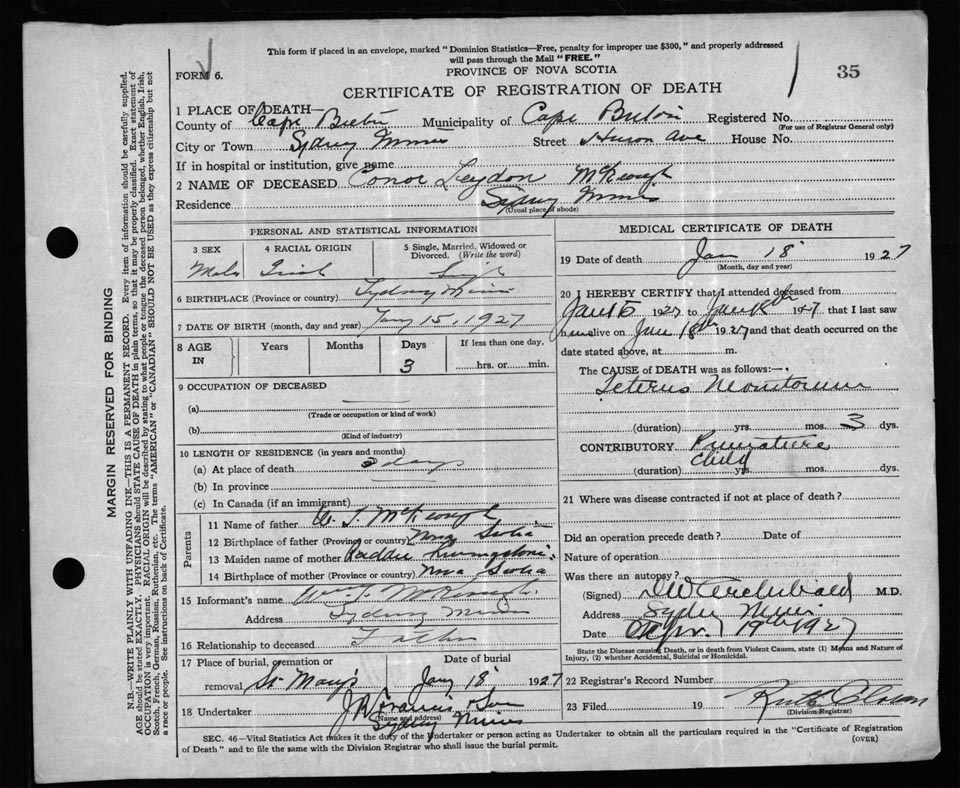 This form if placed in an envelope, marked "Dominion Statistics—Free, penalty for improper use $300," and properly addressed
will pass through the Mail "FREE."
FORM 6.
PROVINCE OF NOVA SCOTIA
35
CERTIFICATE OF REGISTRATION OF DEATH
1 PLACE OF DEATH—
County of Cape Breton Municipality of Cape Breton Registered No.
(For use of Registrar General only)
City or Town Sydney Mines Street Huron Ave House No.
If in hospital or institution, give name
2 NAME OF DECEASED Conor Leydon McKeough
Residence Sydney Mines
(Usual place of abode)
PERSONAL AND STATISTICAL INFORMATION
3 SEX 4 RACIAL ORIGIN 5 Single, Married, Widowed or Divorced. (Write the word)
Male Irish Single
6 BIRTHPLACE (Province or country) Sydney Mines
7 DATE OF BIRTH (month, day and year) Jany 15, 1927
8 AGE IN Years Months Days If less than one day,
3 hrs. or min.
9 OCCUPATION OF DECEASED
(a)
(Trade or occupation or kind of work)
(b)
(Kind of industry)
10 LENGTH OF RESIDENCE (in years and months)
(a) At place of death 3 days
(b) In province
(c) In Canada (if an immigrant)
Parents
11 Name of father J. McKeough
12 Birthplace of father (Province or country) Nova Scotia
13 Maiden name of mother Livingstone
14 Birthplace of mother (Province or country) Nova Scotia
15 Informant's name Wm. J. McKeough
Address Sydney Mines
16 Relationship to deceased Father
17 Place of burial, cremation or Date of burial
removal St Mary's Jany 18 1927
18 Undertaker J. A. Francis & Son
(Name and address)
Sydney Mines
MEDICAL CERTIFICATE OF DEATH
19 Date of death Jan 18 1927
(Month, day and year)
20 I HEREBY CERTIFY that I attended deceased from
Jan 15 1927 to Jan 18th 1927 that I last saw
h im alive on Jan 18th 1927 and that death occurred on the
date stated above, at m.
The CAUSE of DEATH was as follows:—
Icterus Neonatorum
(duration) yrs. mos. 3 dys.
CONTRIBUTORY Premature
Child
(duration) yrs. mos. dys.
21 Where was disease contracted if not at place of death?
Did an operation precede death? Date of
Nature of operation
Was there an autopsy?
(Signed) Archibald M.D.
Address Sydney Mines
Date 19th 1927
State the Disease causing Death, or in death from Violent Causes, state (1) Means and Nature of
Injury, (2) whether Accidental, Suicidal or Homicidal.
22 Registrar's Record Number
23 Filed 19 Ruth
(Division Registrar)
SEC. 46—Vital Statistics Act makes it the duty of the Undertaker or person acting as Undertaker to obtain all the particulars required in the "Certificate of Registration
of Death" and to file the same with the Division Registrar who shall issue the burial permit.
(OVER)
MARGIN RESERVED FOR BINDING
N.B.—WRITE PLAINLY WITH UNFADING INK—THIS IS A PERMANENT RECORD. Every item of information should be carefully supplied.
AGE should be stated EXACTLY. PHYSICIANS should STATE CAUSE OF DEATH in plain terms, so that it may be properly classified. Exact statement of
OCCUPATION is very important. RACIAL ORIGIN will be described by stating to what people or tongue the deceased person belonged, whether English, Irish,
Scotch, French, German, Russian, Ruthenian, etc. The terms "AMERICAN" or "CANADIAN" SHOULD NOT BE USED as they express citizenship but not
a race or people. See instructions on back of Certificate.